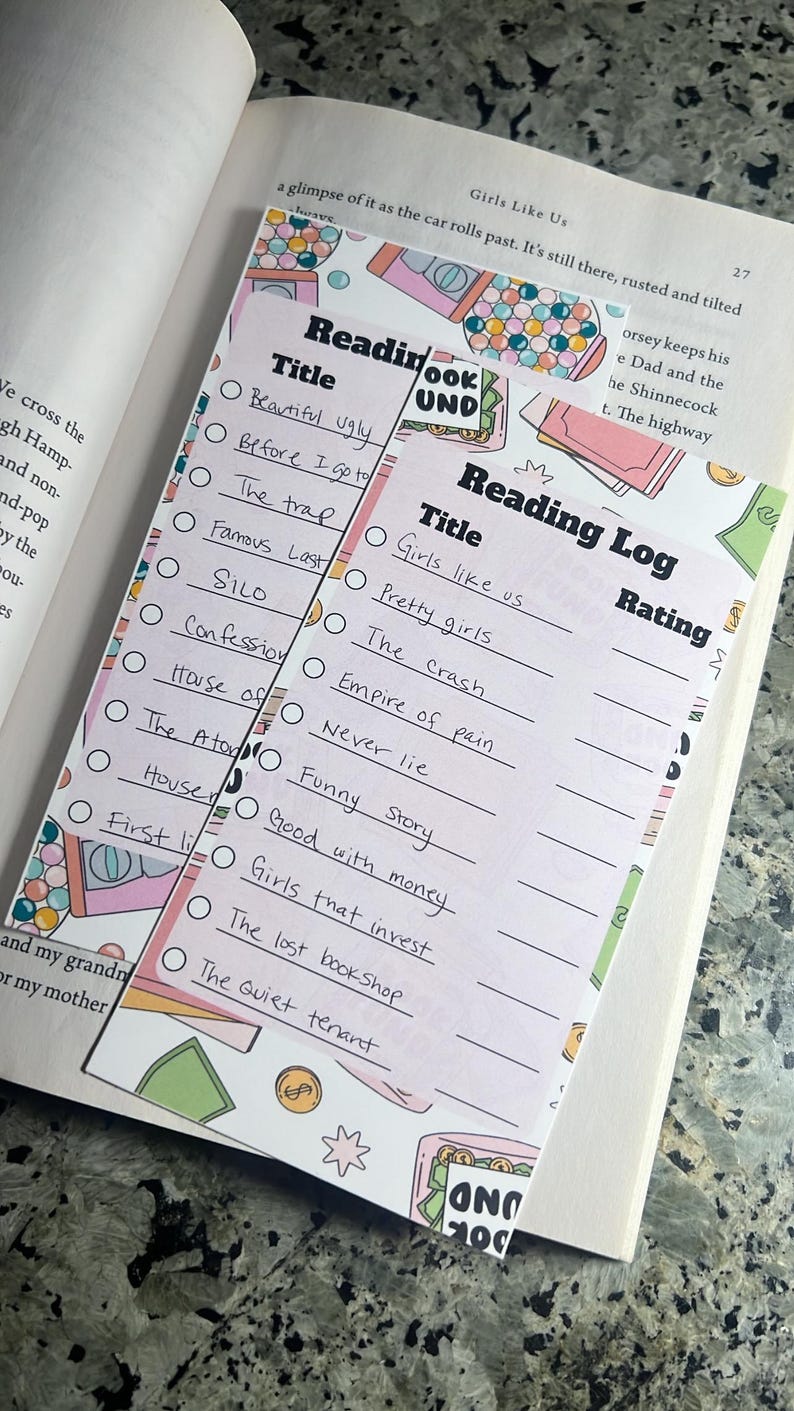 Girls Like Us
27
a glimpse of it as the car rolls past. It's still there, rusted and tilted
always.
orsey keeps his
e Dad and the
he Shinnecock
t. The highway
Ve cross the
gh Hamp-
and non-
nd-pop
by the
ou-
es
and my grandm
or my mother
Readin
Title
Beautiful ugly
Before I go to
The trap
Famous Last
Silo
Confession
House of
The Aton
House
First li
OOK
UND
Reading Log
Title
Rating
Girls like us
Pretty girls
The crash
Empire of pain
Never lie
Funny Story
Good with money
Girls that invest
The lost bookshop
The Quiet tenant
UND
OOK